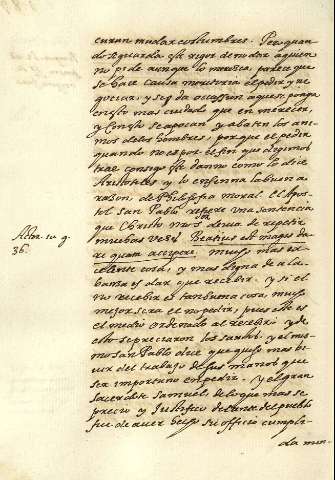 curan mudar costumbres. Pero quan
do se guarda este rigor de no dar a quien
no pide aunque lo meresca parece que
se hace causa necessaria el pedir, ne
gociar, y se da ocassion a que se ponga
en esto mas cuidado que en merecer,
y con esto se apocan y abaten los ani
mos de los hombres, porque el pedir
quando no es por el fin que diximos
trae consigo este danno como lo dice
Aristoteles y lo ensenna la buena
razon de Philosofia moral. El Apos
tol san Pablo refiere una sentencia
que Christo nro s.r devia de repetir
muchas veces Beatius est magis da
re quam accipere. mucho mas ex
celente cosa, y mas digna de ala
bansa es dar que recebir. y si el
no recebir es tan buena cosa, mucho
mejor sera el no pedir, pues este es
el medio ordenado al recebir y de
esto se preciaron los santos. y al mis
mo san Pablo dice que quiso mas bi
vir del trabajo de sus manos que
ser importuno en pedir. y el gran
sacerdote Samuel de lo que mas se
precio y justifico delante del pueblo
fue de aver hecho su officio cumpli
da men-
Actor. 20. g.
36.